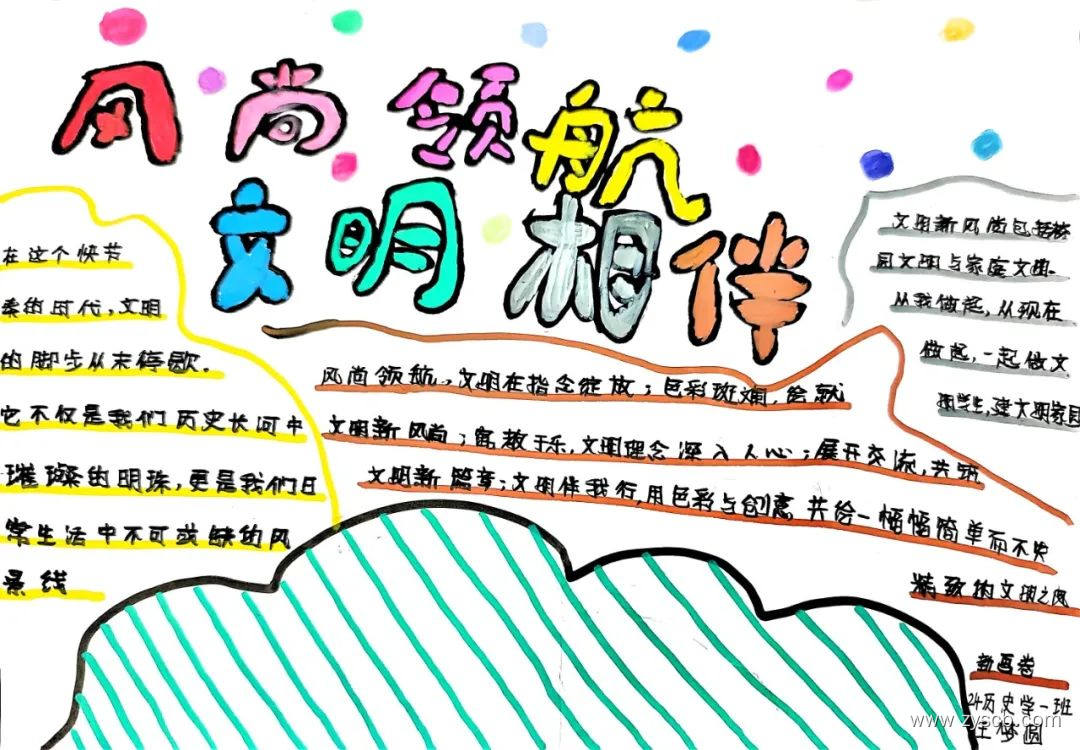 风尚领航
文明相伴
在这个快节
奏的时代，文明
的脚步从未停歇．
它不仅是我们历史长河中
璀璨的明珠，更是我们日
常生活中不可或缺的风
景线
风尚领航，文明在指尖绽放；色彩斑斓，绘就
文明新风尚；寓教于乐，文明理念深入人心；展开交流，共筑
文明新篇章；文明伴我行，用色彩与创意，共绘一幅幅简单而不失
精致的文明之风
新画卷
文明新风尚包括校
园文明与家庭文明．
从我做起，从现在
做起，一起做文
明学生，建文明家园
24历史学一班
王梦圆
www.zyscb.com